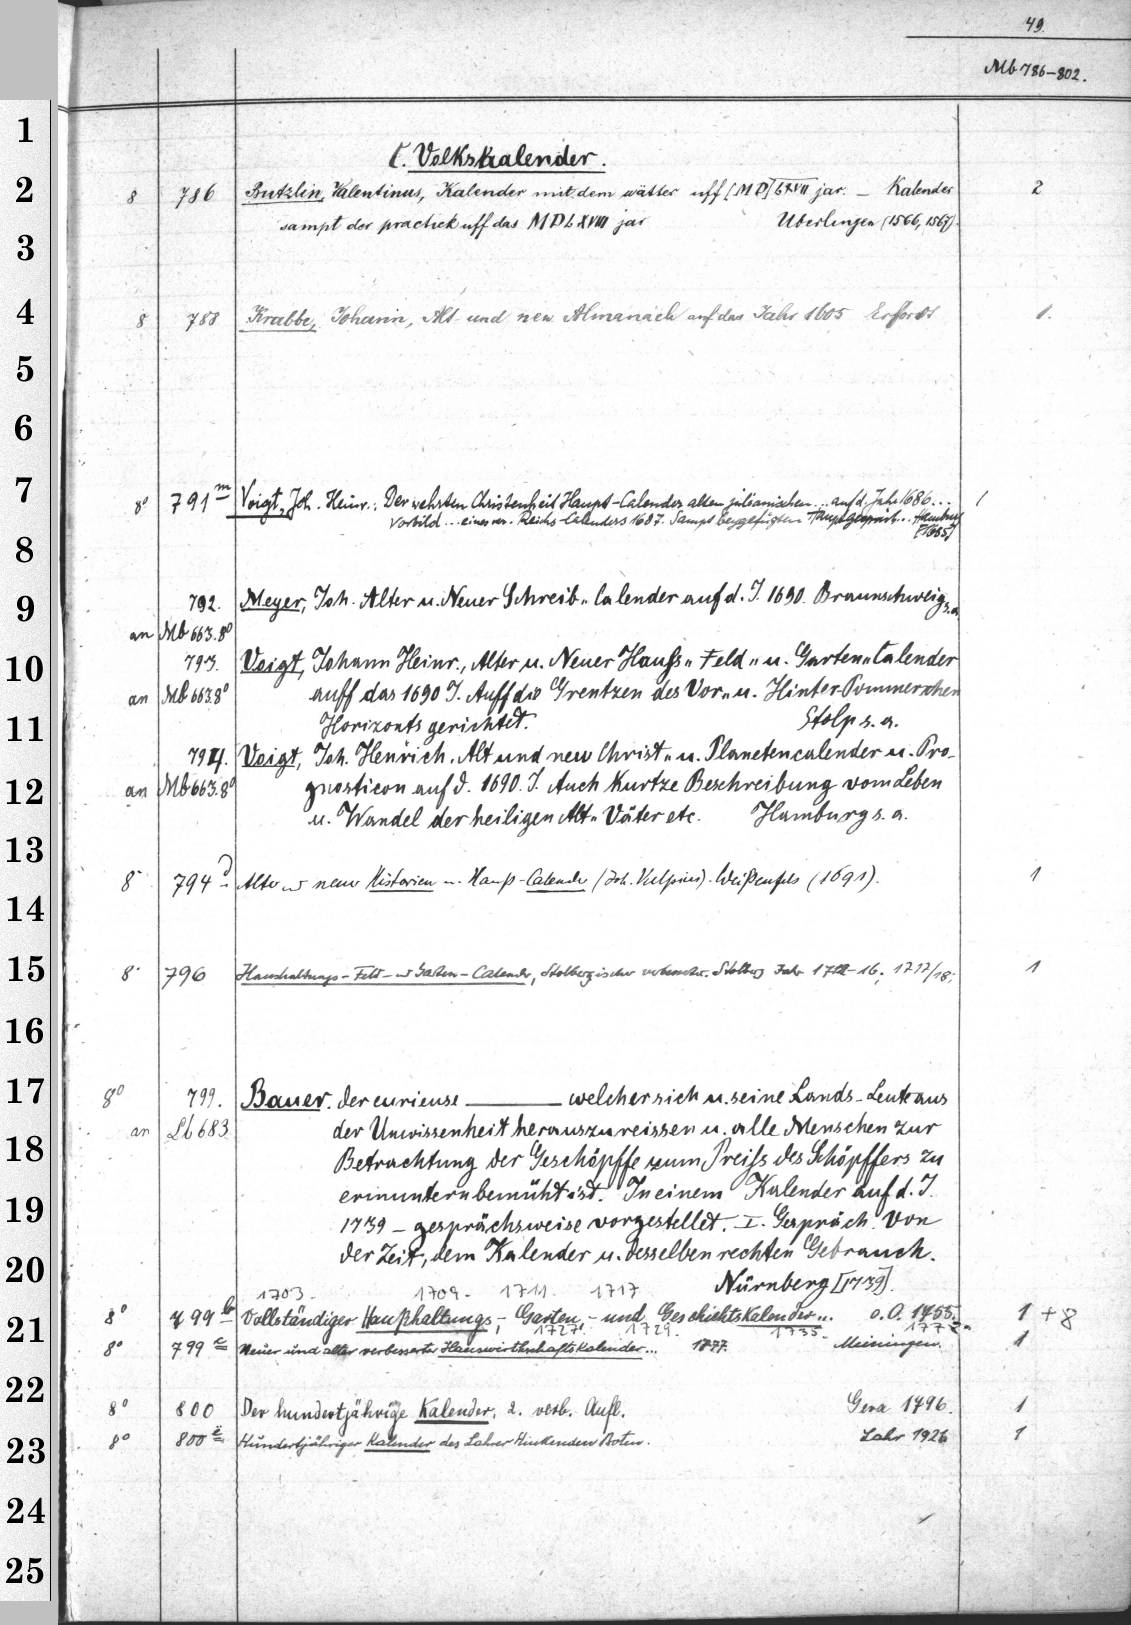 49.
Mb 786-802.
1
C. Volkskalender.
2
8 786 Butzlin, Valentinus, Kalender mit dem wätter uff [MD]LXVII jar. — Kalender 2
sampt der practick uff das MDLXVIII jar Uberlingen (1566, 1567).
3
4
8 788 Krabbe, Johann, Alt und new Almanach auf das Jahr 1605 Erfordt 1.
5
6
7
8° 791 m Voigt, Joh. Heinr.: Der wehrten Christenheit Haupt-Calender alten julianischen ... auf d. Jahr 1686 ... 1
Vorbild ... eines ver. Reichs-Calenders 1687. Sampt beygefügten Hauptgespräch... Hamburg
(1685)
8
9
792. Meyer, Joh. Alter u. Neuer Schreib- Calender auf d. J. 1690. Braunschweig s.a.
an Mb 663.8°
10
793. Voigt, Johann Heinr., Alter u. Neuer Hauß- Feld- u. Garten-Calender
an Mb 663.8° auff das 1690 J. Auff die Grentzen des Vor- u. Hinter-Pommerschen
11
Horizonts gerichtet. Stolp s. a.
794. Voigt, Joh. Henrich, Alt und new Christ- u. Planetencalender u. Pro-
12
an Mb 663.8° gnosticon auf d. 1690. J. Auch kurtze Beschreibung vom Leben
u. Wandel der heiligen Alt- Väter etc. Hamburg s. a.
13
8° 794 d Alter u neuer Historien u. Hauß-Calender (Joh. Vulpius). Weißenfels (1691). 1
14
15
8° 796 Haushaltungs- Feld- und Garten-Calender, Stolbergischer verbesserter. Stolberg Jahr 1712-16; 1717/18; 1
16
17
8° 799. Bauer. der curieuse ——— welcher sich u. seine Lands-Leute aus
an Lb 683 der Unwissenheit herauszureissen u. alle Menschen zur
18
Betrachtung der Geschöpffe zum Preiß des Schöpffers zu
19
ermuntern bemüht ist. In einem Kalender auf d. J.
1739 — gesprächsweise vorgestellet. I. Gespräch. Von
20
der Zeit, dem Kalender u. desselben rechten Gebrauch.
Nürnberg [1739].
1703. 1709. 1711. 1717
21
8° 799 b Vollständiger Haußhaltungs-, Garten- und Geschichtskalender... o.O. 1755. 1 + 8
1727. 1729. 1735. 1772
8° 799 c Neuer und alter verbesserter Hauswirthschaftskalender... 1777. Meiningen. 1
22
8° 800 Der hundertjährige Kalender. 2. verb. Aufl. Gera 1796. 1
23
8° 800 i Hundertjähriger Kalender des Lahrer Hinkenden Boten. Lahr 1926 1
24
25